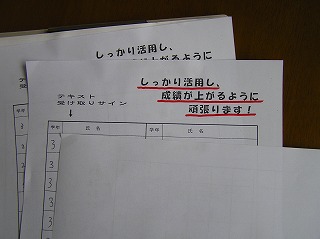 しっかり活用し、
上がるように
しっかり活用し、
成績が上がるように
頑張ります！
テキスト
受け取りサイン
↓
学年 氏名 学年 氏名
3
3
3
3
3